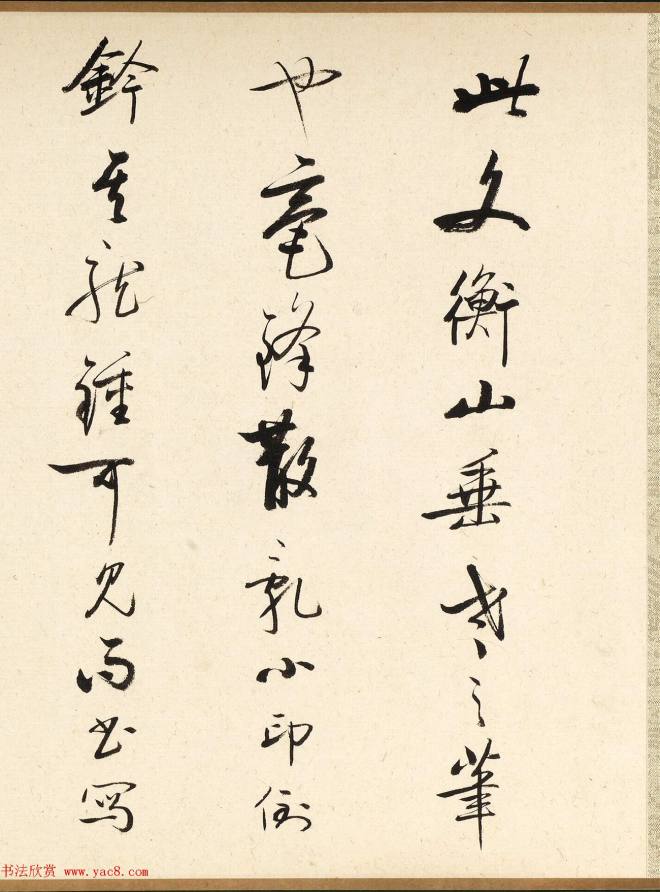 此文衡山垂老之筆
也毫鋒散亂小印倒
鈐其龍鍾可見而書寫
书法欣赏 www.yac8.com